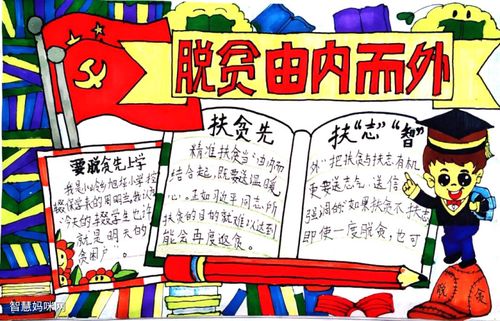 脱贫由内而外
扶贫先
扶“志”“智”
要脱贫先上学
今天的辍学学生也许
就是明天的
贫困户。
精准扶贫当“由内而
结合起,既要送温暖
心。正如习近平同志所
扶贫的目的就难以达到
能会再度返贫。
外”把扶贫与扶志有机
更要送志气、送信
强调的“如果扶贫不扶志
即使一度脱贫,也可
脱贫
智慧妈咪网